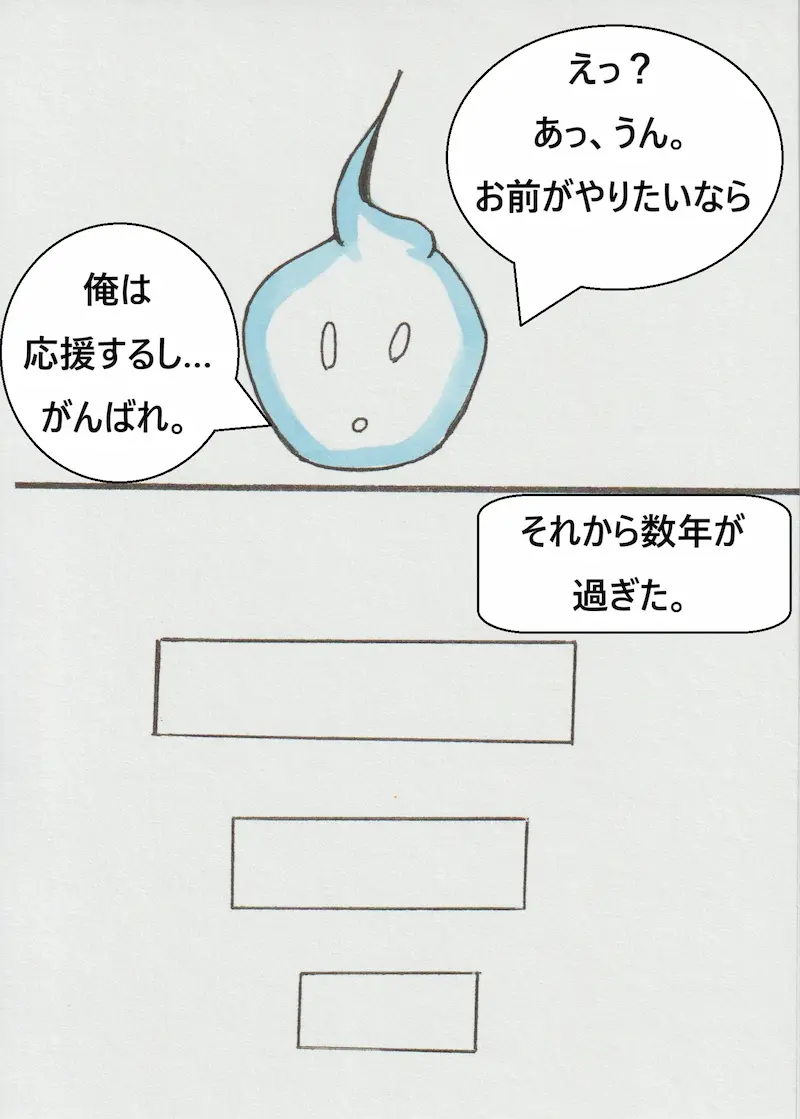 えっ？
あっ、うん。
お前がやりたいなら
俺は
応援するし…
がんばれ。
それから数年が
過ぎた。